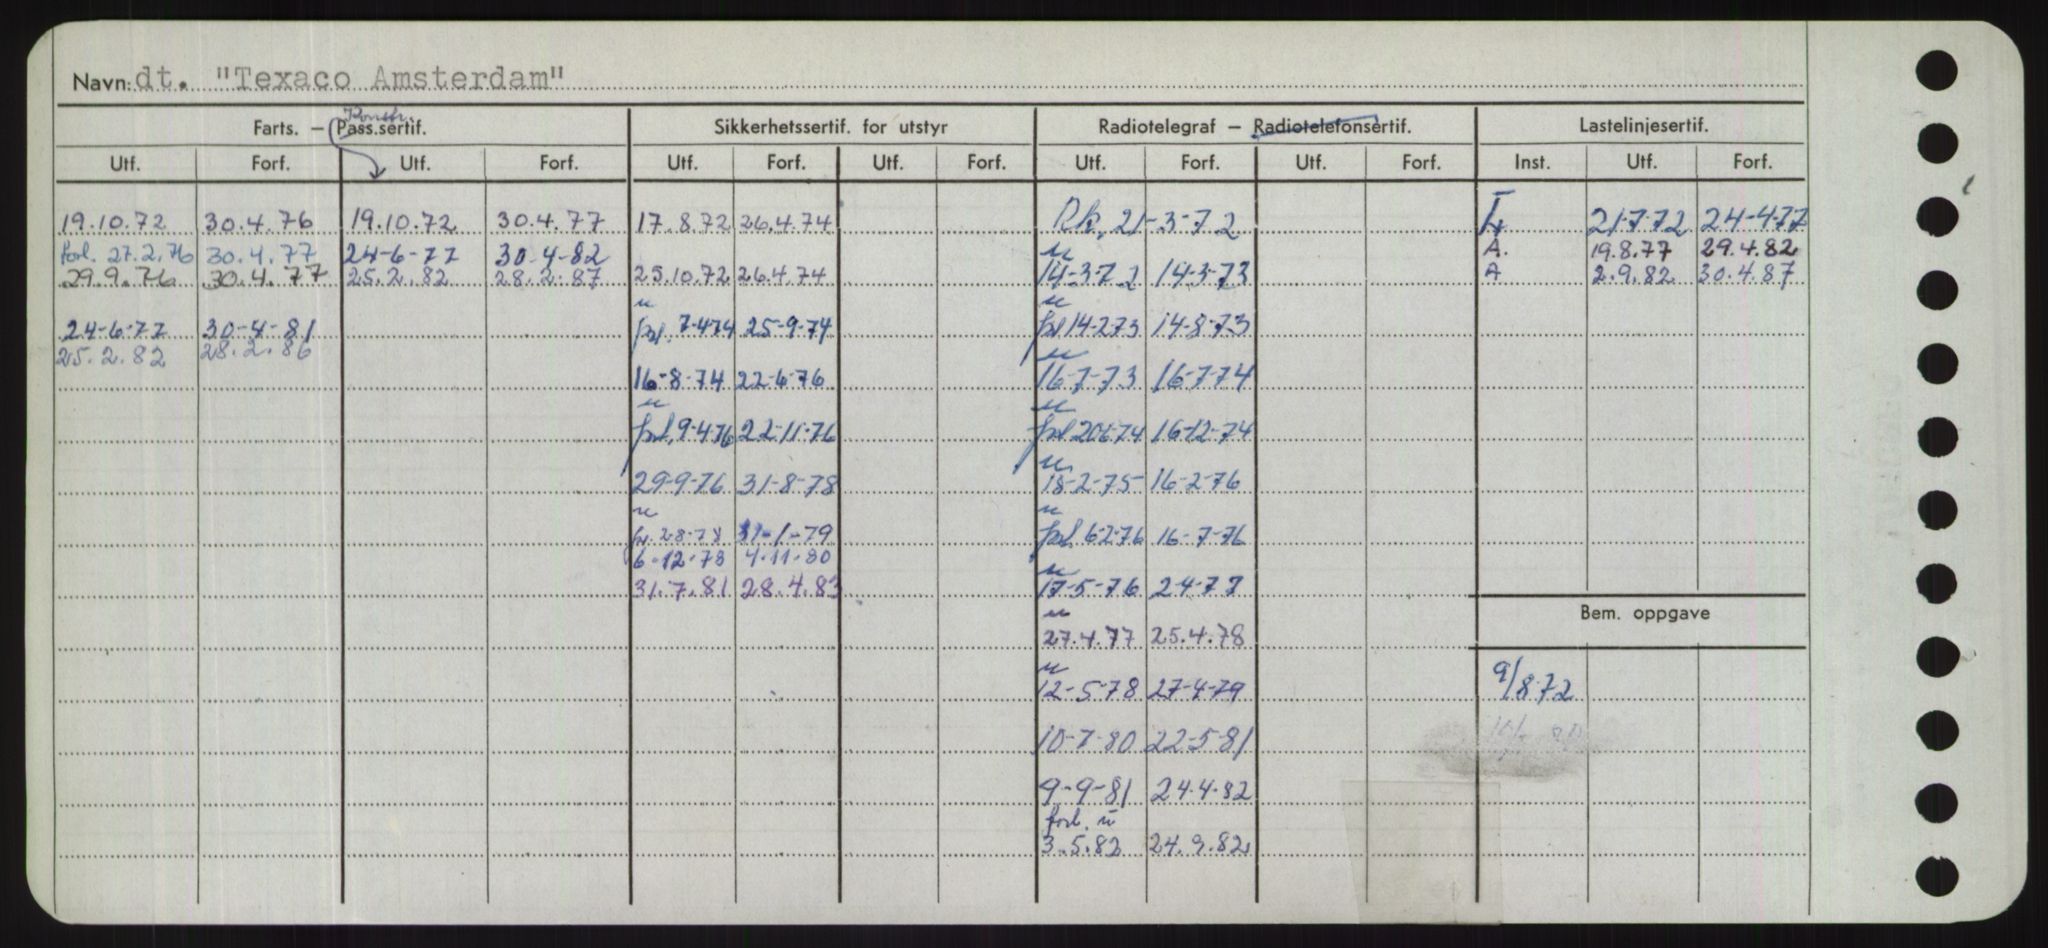 Navn: dt. "Texaco Amsterdam"
Konstr.
Farts. — Pass.sertif. Sikkerhetssertif. for utstyr Radiotelegraf — Radiotelefonsertif. Lastelinjesertif.
Utf. Forf. Utf. Forf. Utf. Forf. Utf. Forf. Utf. Forf. Utf. Forf. Inst. Utf. Forf.
19.10.72 30.4.76 19.10.72 30.4.77 17.8.72 26.4.74 Rk. 21-3-72 21-7-72 24-4-77
forl. 27.2.76 30.4.77 24-6-77 30-4-82 u A. 19.8.77 29.4.82
29.9.76 30.4.77 25.2.82 28.2.87 25.10.72 26.4.74 14-3-72 14-3-73 A 2.9.82 30.4.87
u u
24-6-77 30-4-81 forl. 7-4-74 25-9-74 forl 14-2-73 14-8-73
25.2.82 28.2.86 u
16-8-74 22-6-76 16-7-73 16-7-74
u u
forl. 9-4-76 22-11-76 forl 20-6-74 16-12-74
u
29-9-76 31-8-78 18-2-75 16-2-76
u u
fo. 2-8-78 31-1-79 forl 6-2-76 16-7-76
6-12-78 4.11.80 u
31.7.81 28.4.83 17-5-76 2-4-77
u Bem. oppgave
27.4.77 25.4.78
u
12-5-78 27-4-79 9/8-72
10-7-80 22-5-81
9-9-81 24.4.82
forl. u
3.5.82 24.9.82